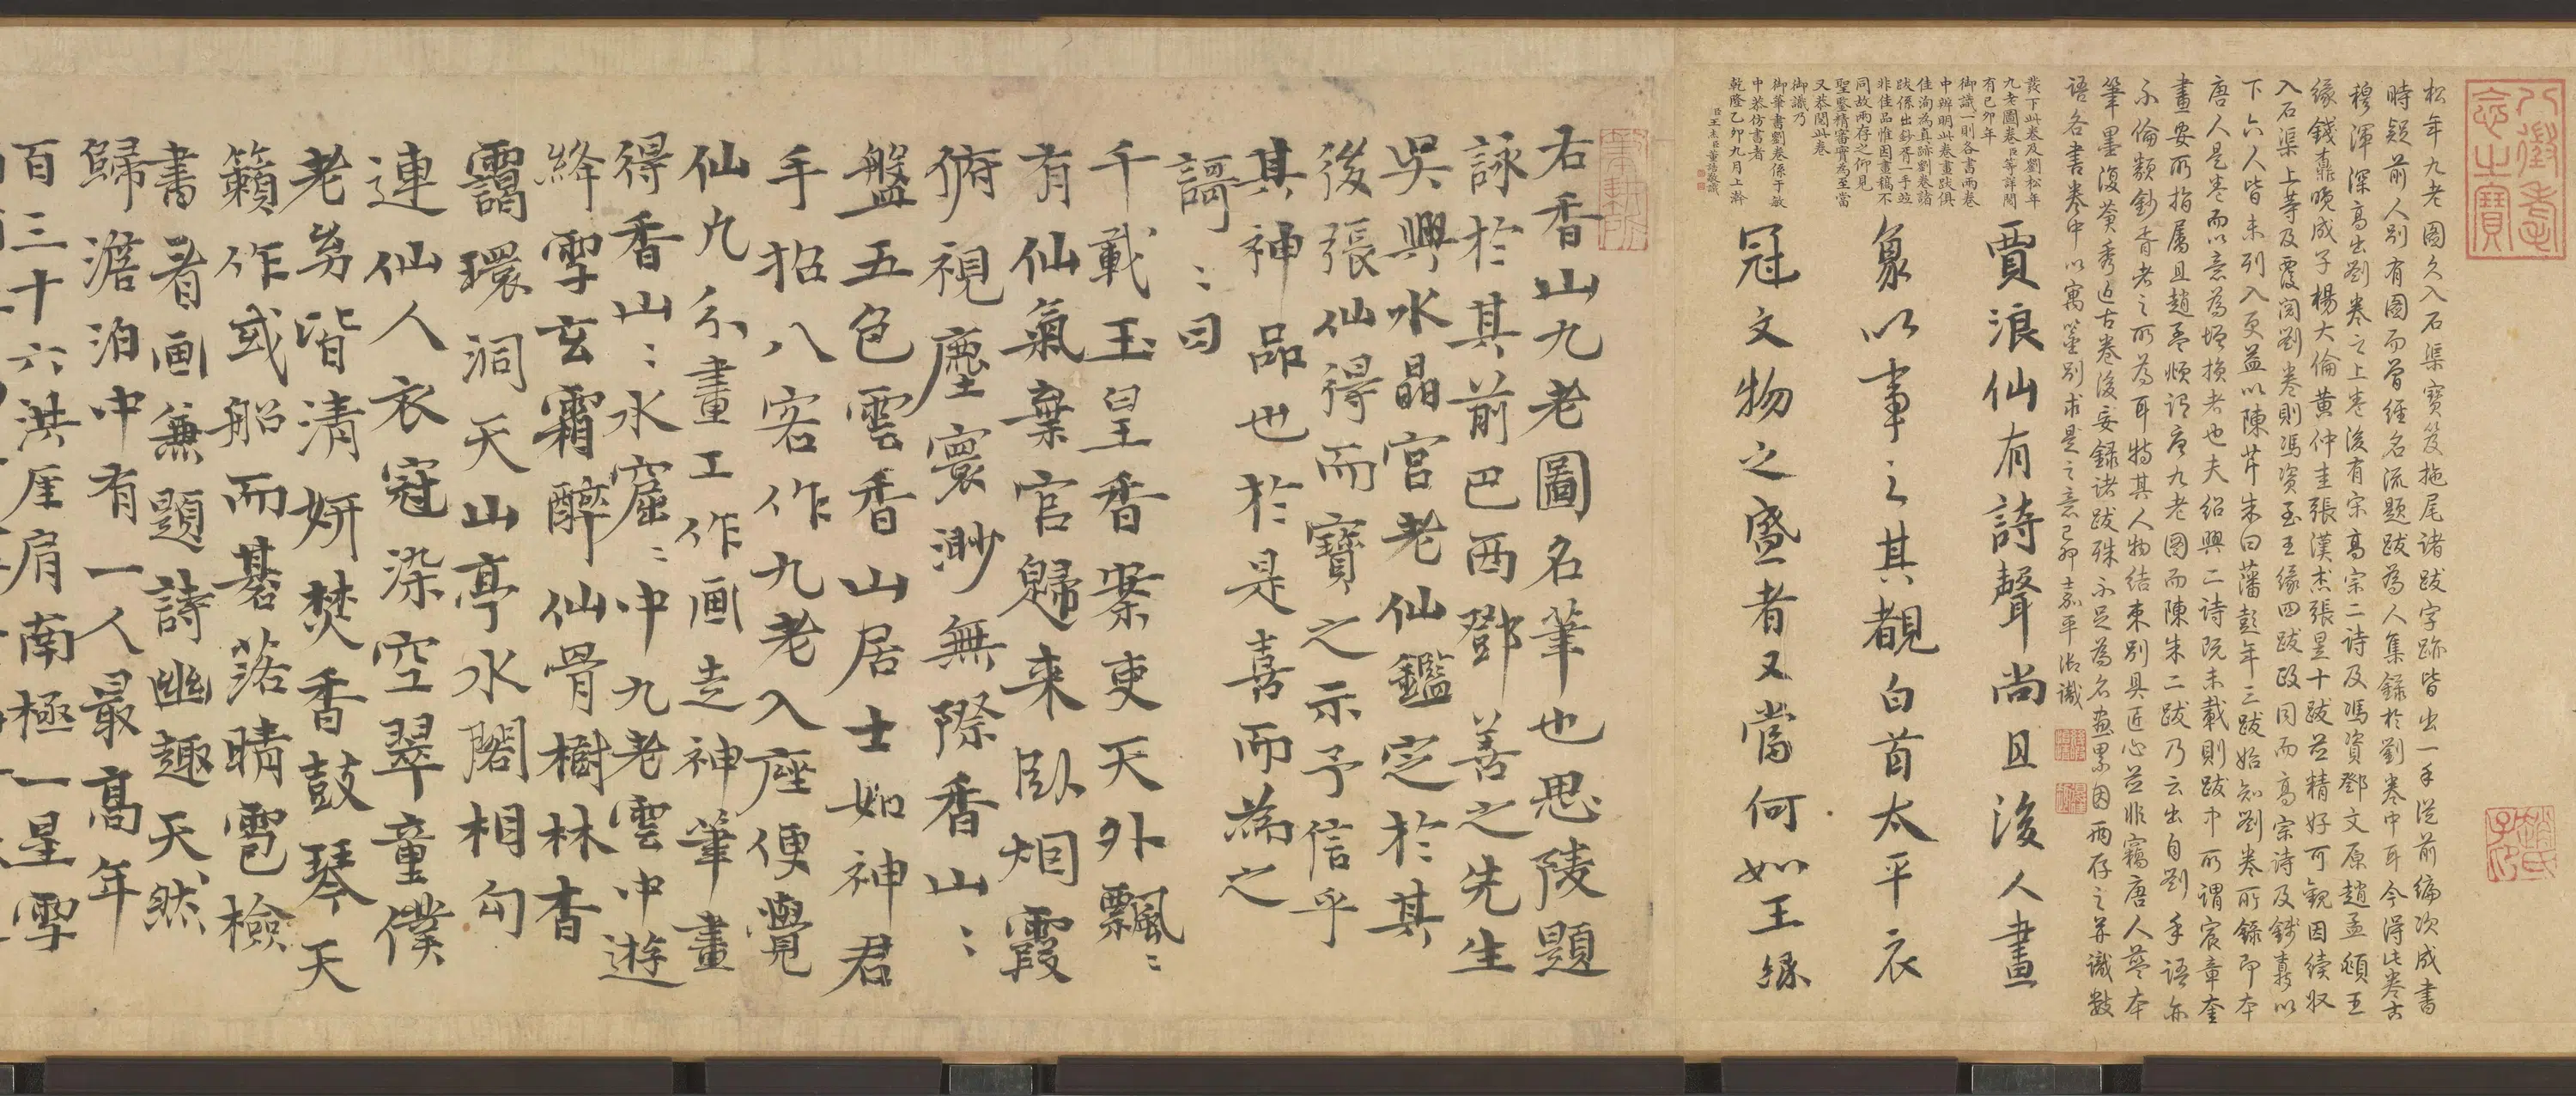 八徵耄念之寶
松年九老圖久入石渠寶笈拖尾諸跋字跡皆出一手從前編次成書
時疑前人別有圖而曾經名流題跋為人集錄於劉卷中耳今得此卷古
穆渾深高出劉卷之上卷後有宋高宗二詩及馮資鄧文原趙孟頫王
緣錢鼒曉成子楊大倫黃仲圭張漢杰張昱十跋並精好可觀因續收
入石渠上等及覆閱劉卷則馮資至王緣四跋政同而高宗詩及錢鼒以
下六人皆未列入更益以陳芹朱曰藩彭年三跋始知劉卷所錄即本
唐人是卷而以意為增損者也夫紹興二詩既未載則跋中所謂宸章奎
畫安所指屬且趙孟頫謂唐九老圖而陳朱二跋乃云出自劉手語亦
不倫類鈔胥者之所為耳特其人物結束別具匠心並非竊唐人藍本
筆墨復黃秀近古卷後妄錄諸跋殊不足為名畫累因兩存之并識數
語各書卷中以寓鑒別求是之意己卯嘉平御識
賈浪仙有詩聲尚且後人畫
象以事之其覩白首太平衣
冠文物之盛者又當何如王緣
發下此卷及劉松年
九老圖卷臣等詳閱
有己卯年
御識一則各書兩卷
中辨明此卷畫跋俱
佳洵為真跡劉卷諸
跋係出鈔胥一手並
非佳品惟因畫稿不
同故兩存之仰見
聖鑒精審實為至當
又恭閱此卷
御識乃
御筆書劉卷係于敏
中恭仿書者
乾隆乙卯九月上澣
臣王杰臣董誥敬識
右香山九老圖名筆也思陵題
詠於其前巴西鄧善之先生
吳興水晶宮老仙鑑定於其
後張仙得而寶之示予信乎
其神品也於是喜而為之
謌謌曰
千載玉皇香案吏天外飄飄
有仙氣棄官歸来臥烟霞
俯視塵寰渺無際香山山
盤五色雲香山居士如神君
手招八客作九老入座便覺
仙凡分畫工作画走神筆畫
得香山山水窟窟中九老雲中遊
絳雪玄霜醉仙骨樹林杳
靄環洞天山亭水閣相勾
連仙人衣冠染空翠童僕
老芻皆清妍焚香鼓琴天
籟作或船而碁落晴雹檢
書看画兼題詩幽趣天然
歸澹泊中有一人最高年
百三十六洪厓肩南極一星雪